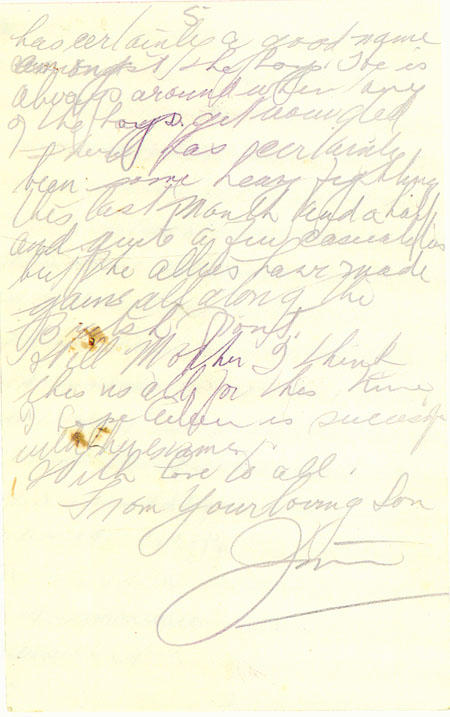 5
has certainly a good name
amongst the boys. He is
always around when any
of the boys get wounded
There has certainly
been some heavy fighting
this last Month and a half
and quite a few casualties
but the allies have made
gains all along the
British Front.
Well Mother I think
this is all for this time
I hope is success
with exams.
With Love to all.
From Your loving Son